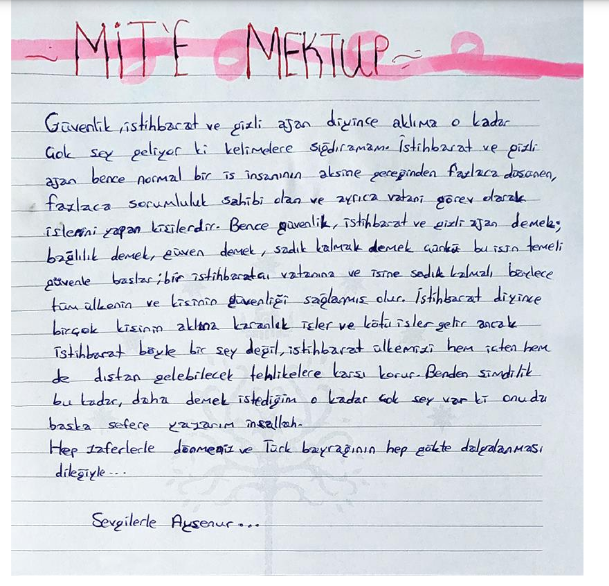 MİT'E MEKTUP
Güvenlik, istihbarat ve gizli ajan diyince aklıma o kadar
çok şey geliyor ki kelimelere sığdıramam. İstihbarat ve gizli
ajan bence normal bir iş insanının aksine gereğinden fazlaca düşünen,
fazlaca sorumluluk sahibi olan ve ayrıca vatani görev olarak
işlerini yapan kişilerdir. Bence güvenlik, istihbarat ve gizli ajan demek;
bağlılık demek, güven demek, sadık kalmak demek çünkü bu işin temeli
güvenle başlar; bir istihbaratçı vatanına ve işine sadık kalmalı böylece
tüm ülkenin ve kişinin güvenliği sağlamış olur. İstihbarat diyince
birçok kişinin aklına karanlık işler ve kötü işler gelir ancak
istihbarat böyle bir şey değil, istihbarat ülkemizi hem içten hem
de dıştan gelebilecek tehlikelere karşı korur. Benden şimdilik
bu kadar, daha demek istediğim o kadar çok şey var ki onuda
başka sefere yazarım inşallah.
Hep zaferlerle dönmeniz ve Türk bayrağının hep gökte dalgalanması
dileğiyle...
Sevgilerle Ayşenur...